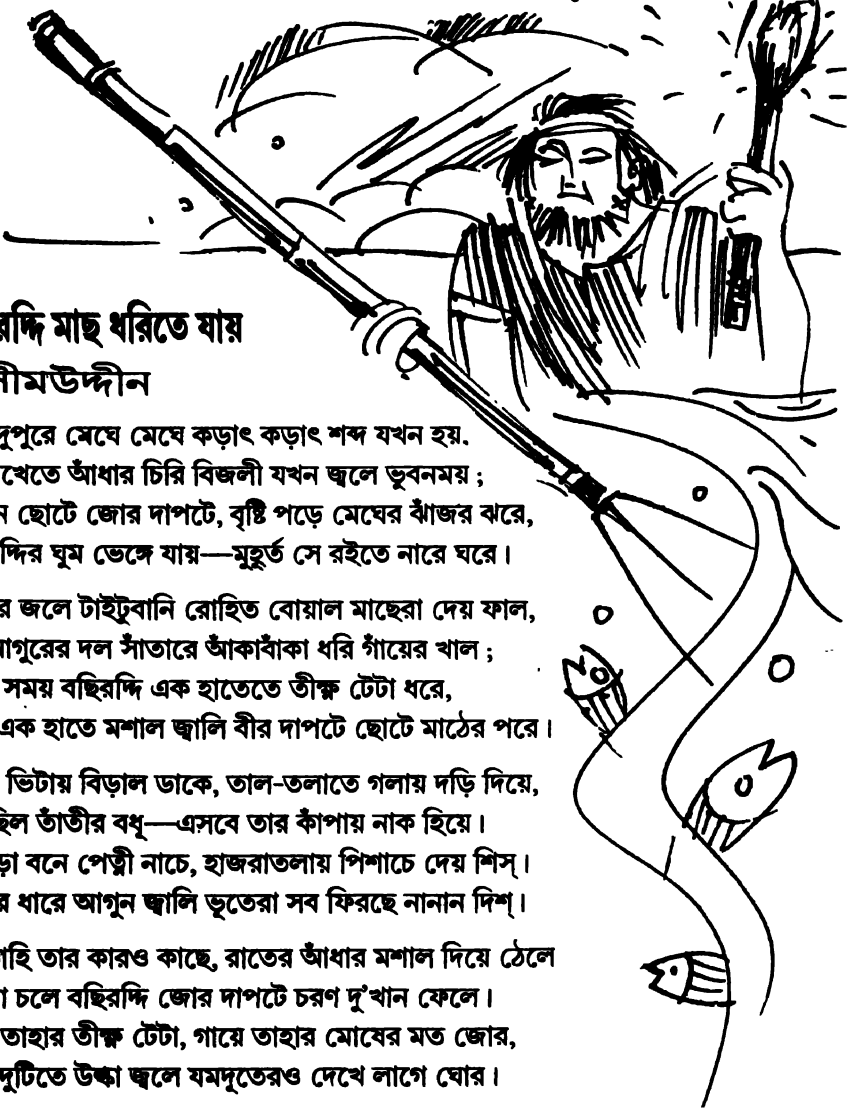 রদ্দি মাছ ধরিতে যায়
ীমউদ্দীন
দুপুরে মেঘে মেঘে কড়াৎ কড়াৎ শব্দ যখন হয়.
খেতে আঁধার চিরি বিজলী যখন জ্বলে ভুবনময় ;
ন ছোটে জোর দাপটে, বৃষ্টি পড়ে মেঘের ঝাঁজর ঝরে,
দ্দির ঘুম ভেঙ্গে যায়—মুহূর্ত সে রইতে নারে ঘরে।
র জলে টাইটুবানি রোহিত বোয়াল মাছেরা দেয় ফাল,
াগুরের দল সাঁতারে আঁকাবাঁকা ধরি গাঁয়ের খাল ;
সময় বছিরদ্দি এক হাতেতে তীক্ষ্ণ টেটা ধরে,
এক হাতে মশাল জ্বালি বীর দাপটে ছোটে মাঠের পরে।
ভিটায় বিড়াল ডাকে, তাল-তলাতে গলায় দড়ি দিয়ে,
ছিল তাঁতীর বধূ—এসবে তার কাঁপায় নাক হিয়ে।
ড়া বনে পেত্নী নাচে, হাজরাতলায় পিশাচে দেয় শিস্।
র ধারে আগুন জ্বালি ভূতেরা সব ফিরছে নানান দিশ্।
াহি তার কারও কাছে, রাতের আঁধার মশাল দিয়ে ঠেলে
া চলে বছিরদ্দি জোর দাপটে চরণ দু'খান ফেলে।
তাহার তীক্ষ্ণ টেটা, গায়ে তাহার মোষের মত জোর,
দুটিতে উল্কা জ্বলে যমদূতেরও দেখে লাগে ঘোর।